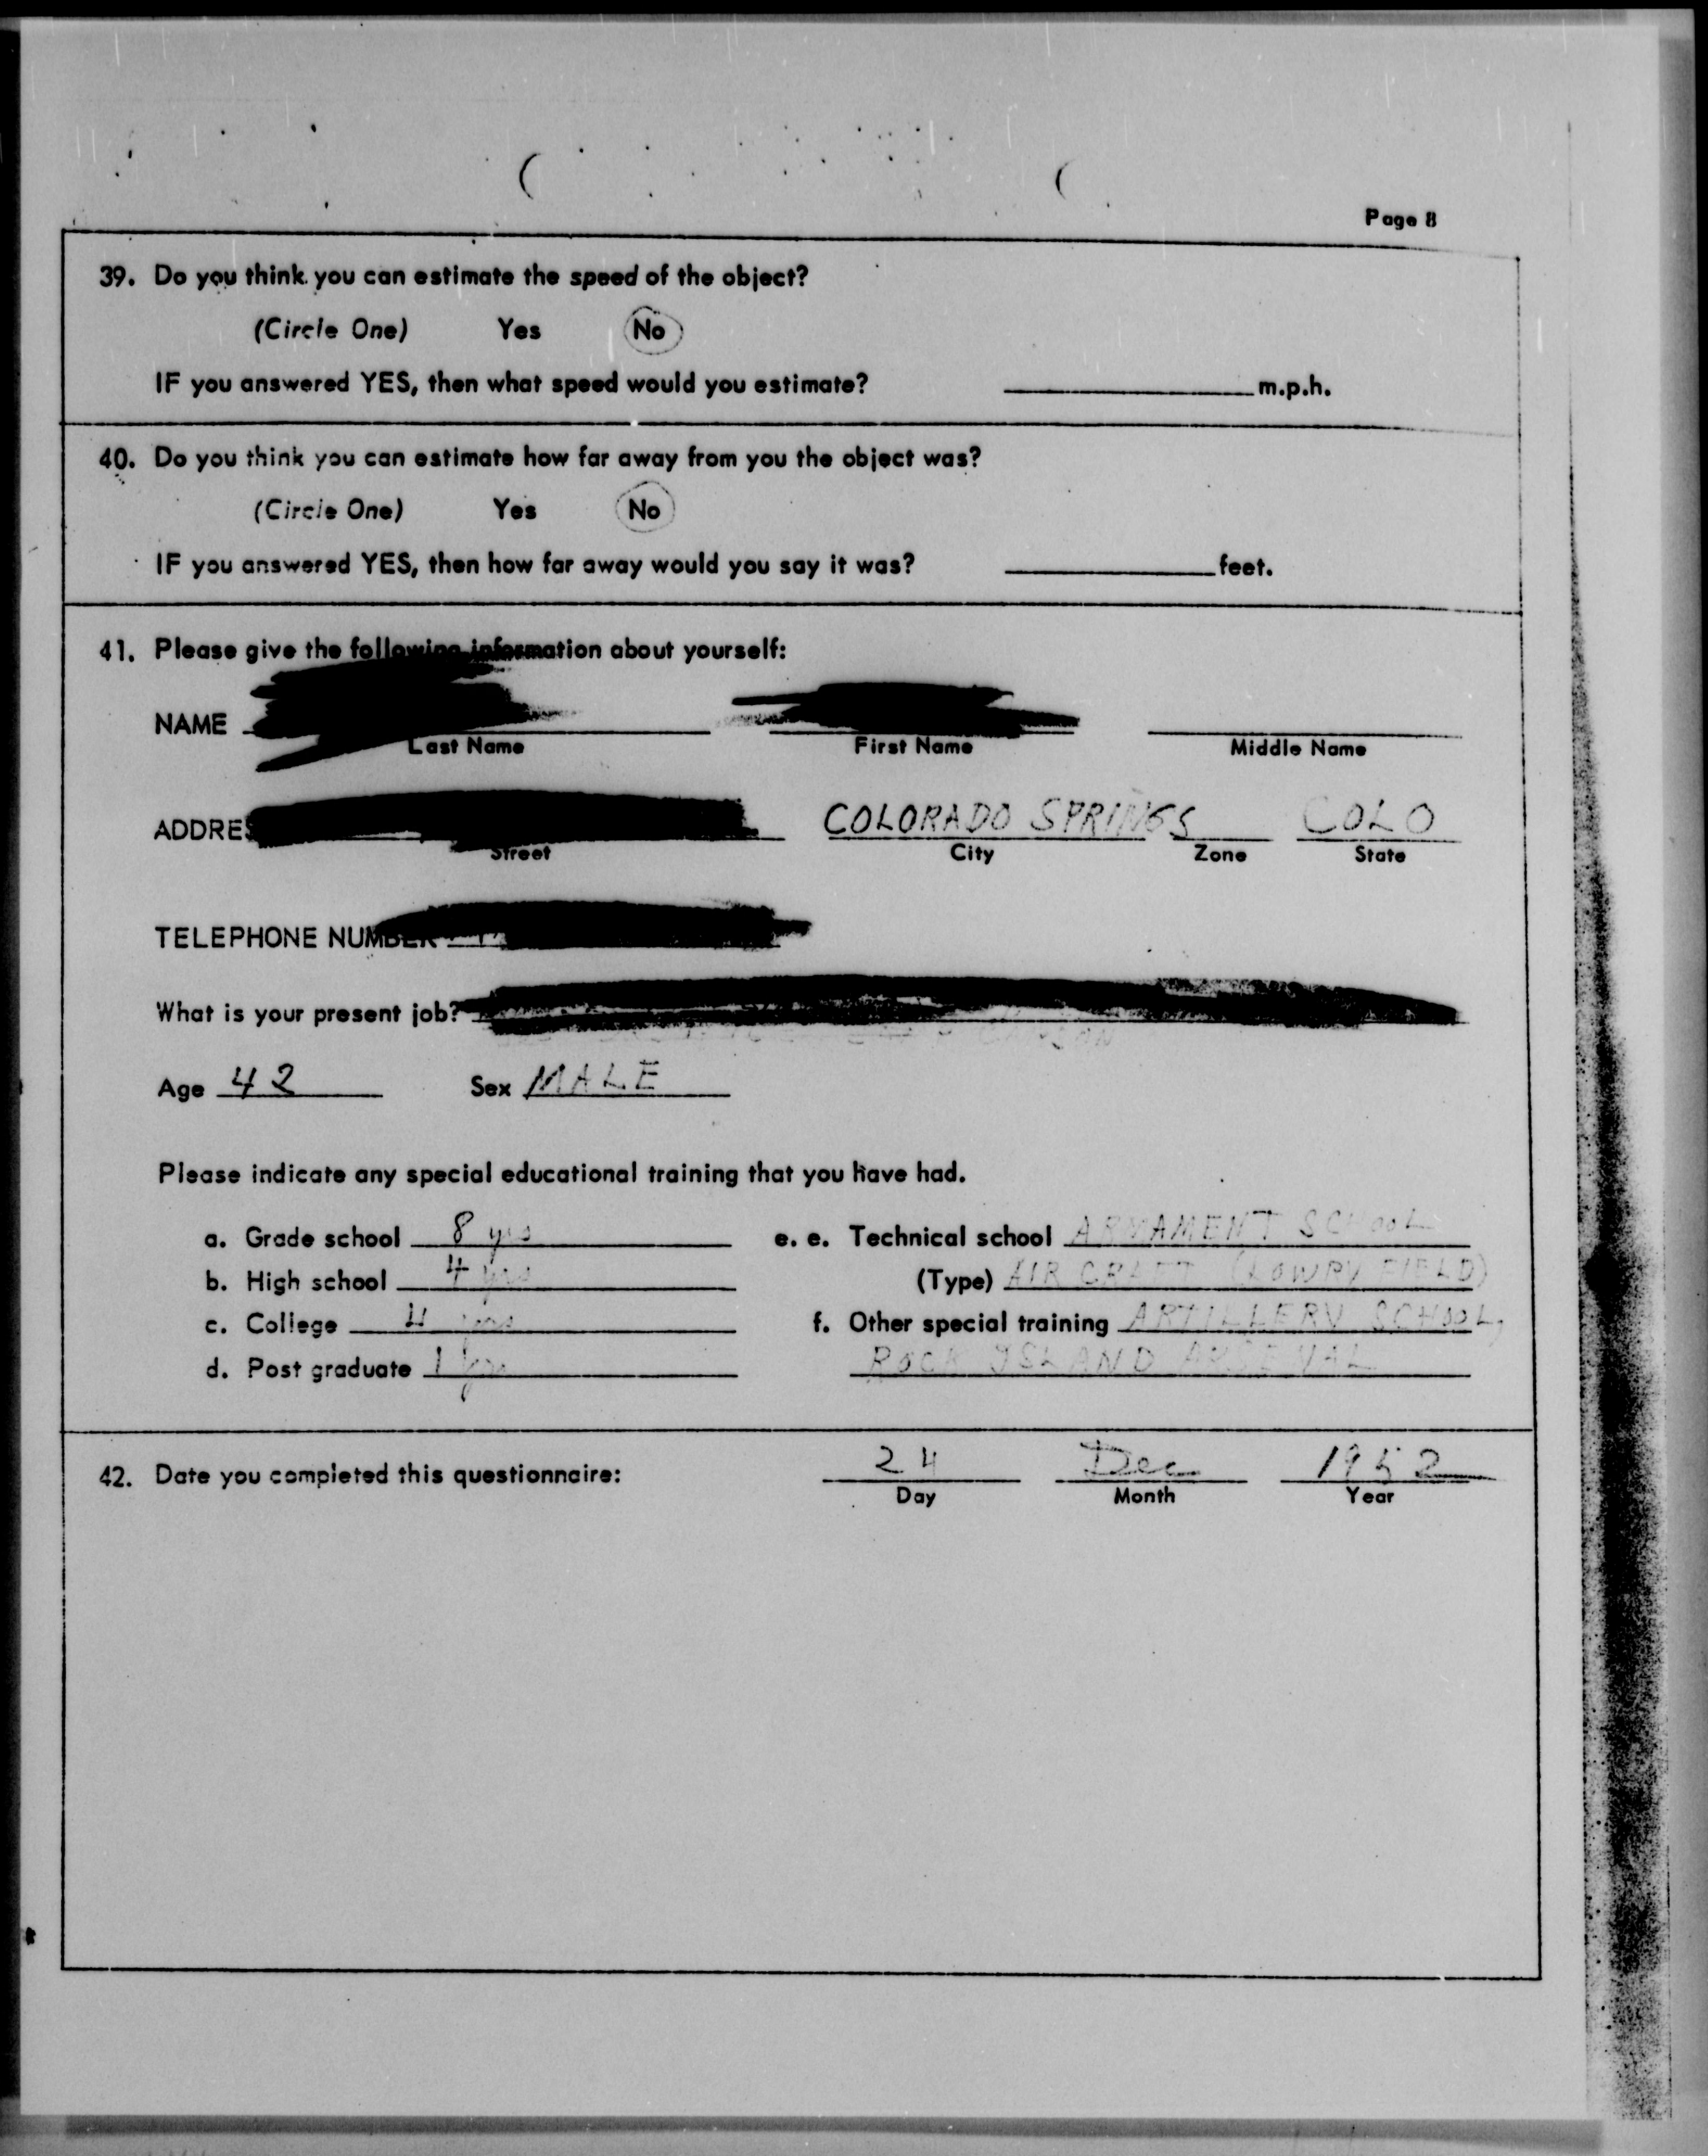 Page 8
39. Do you think you can estimate the speed of the object?
(Circle One) Yes No
IF you answered YES, then what speed would you estimate? m.p.h.
40. Do you think you can estimate how far away from you the object was?
(Circle One) Yes No
IF you answered YES, then how far away would you say it was? feet.
41. Please give the following information about yourself:
NAME
Last Name First Name Middle Name
COLORADO SPRINGS COLO
Street City Zone State
TELEPHONE NUMBER
What is your present job?
Age 42 Sex MALE
Please indicate any special educational training that you have had.
a. Grade school 8 yrs e. e. Technical school ARMAMENT SCHOOL
b. High school 4 yrs (Type) AIR CRAFT (LOWRY FIELD)
c. College 4 yrs f. Other special training ARTILLERY SCHOOL,
d. Post graduate 1 yr ROCK ISLAND ARSENAL
42. Date you completed this questionnaire: 24 Dec 1952
Day Month Year